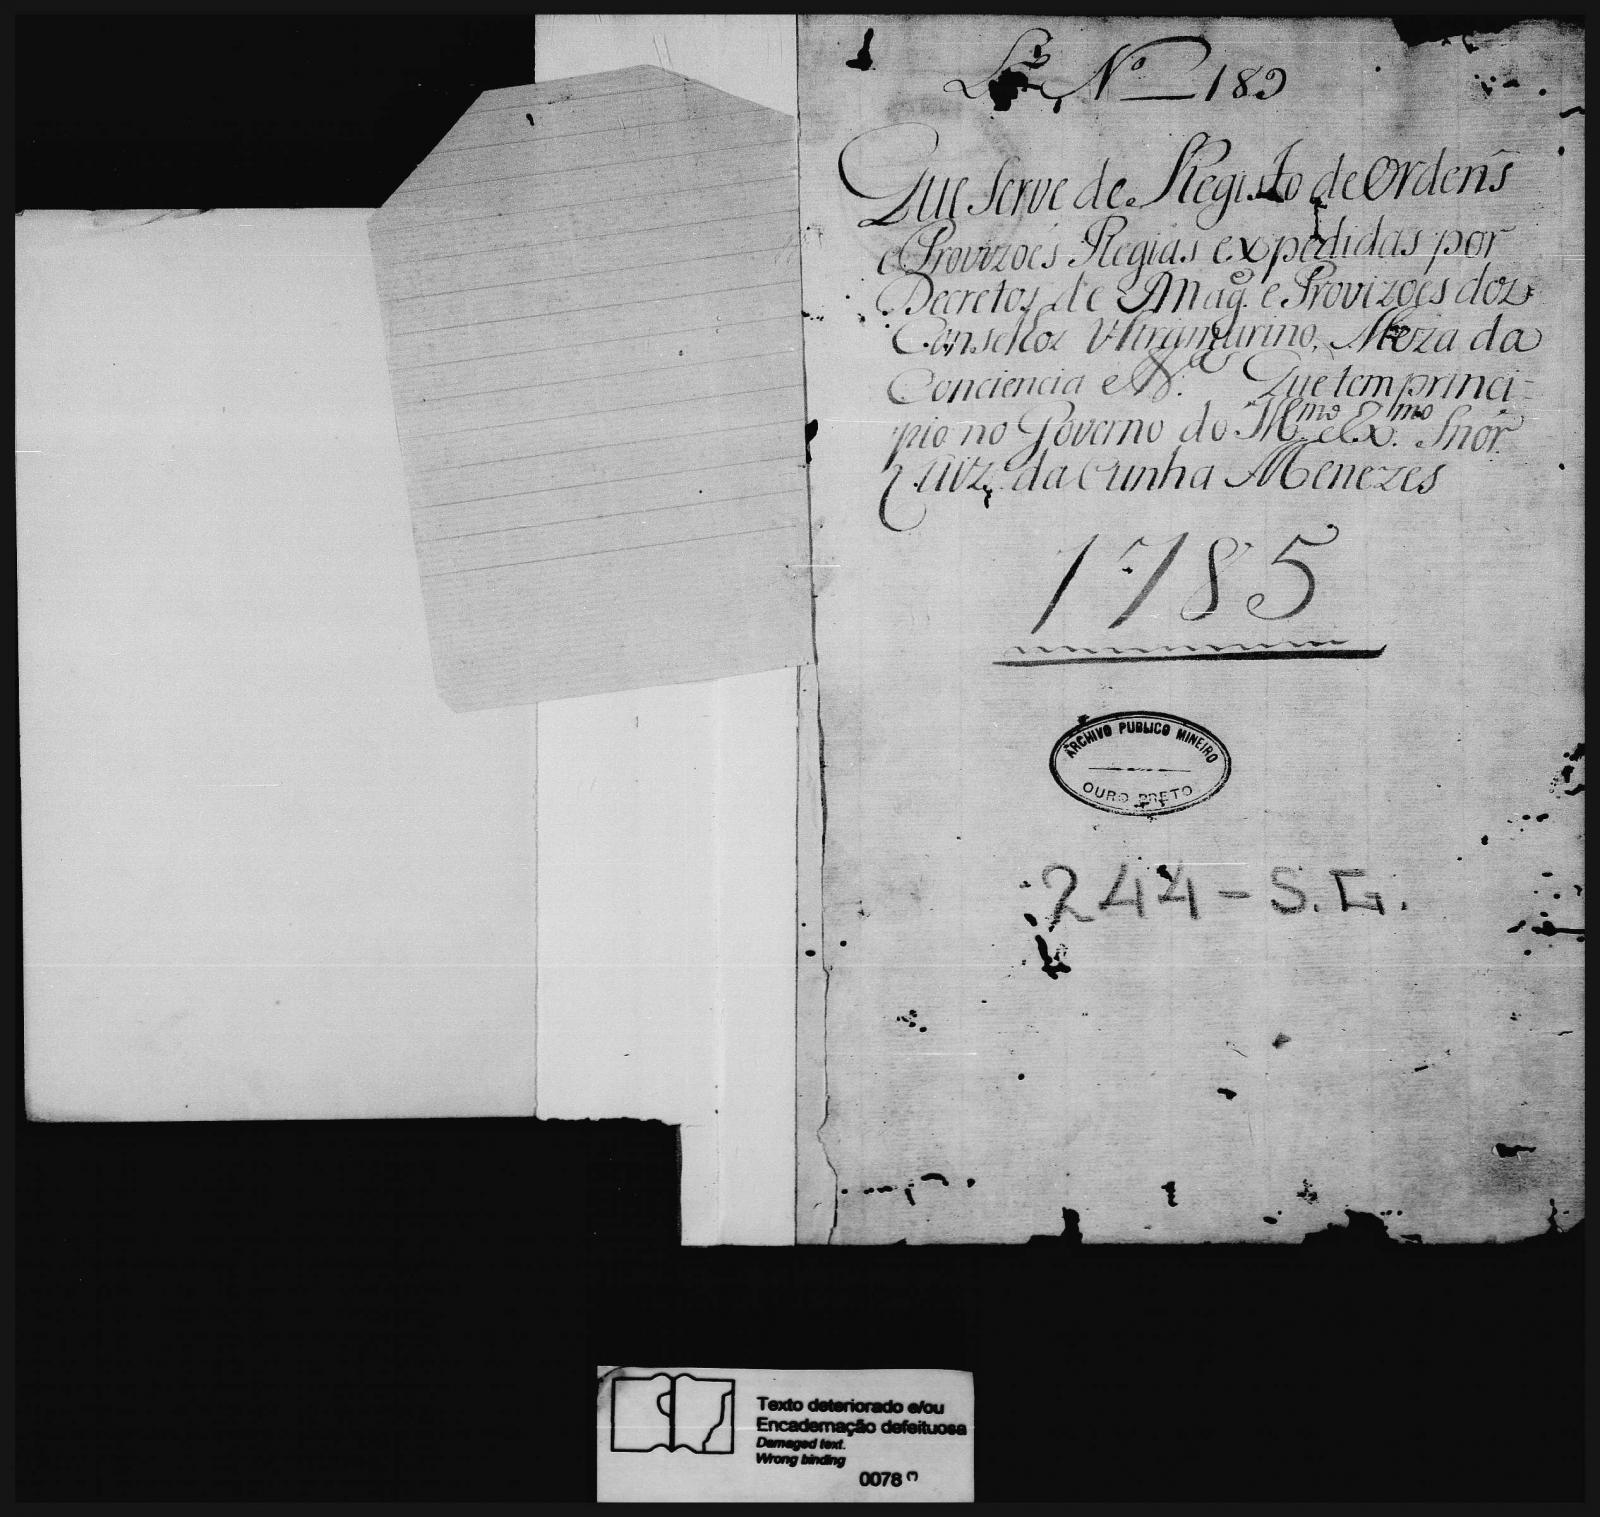 L.º N.º 189
Que Serve de Registo de Ordens
e Provizoes Regias expedidas por
Decretos de S. Mag.e e Provizoes doz
Conselhoz Ultramarino, Meza da
Conciencia e &.a Que tem princi=
pio no Governo do Ill.mo e Ex.mo Snor.
Luiz da Cunha Menezes
1785
ARCHIVO PUBLICO MINEIRO
OURO PRETO
244-S.G.
Texto deteriorado e/ou
Encadernação defeituosa
Damaged text.
Wrong binding
0078